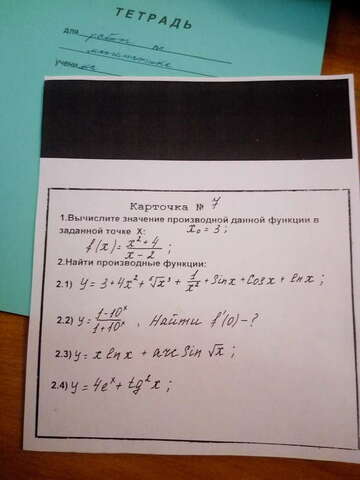 ТЕТРАДЬ
для работ по
математике
учени
Карточка № 7
1.Вычислите значение производной данной функции в
заданной точке X: x₀ = 3;
f(x) = (x²+4)/(x-2);
2.Найти производные функции:
2.1) y = 3 + 4x² + ⁵√x³ + 1/x² + sinx + cosx + lnx;
2.2) y = (1-10ˣ)/(1+10ˣ). Найти f'(0) - ?
2.3) y = x lnx + arc sin √x;
2.4) y = 4eˣ + tg²x;